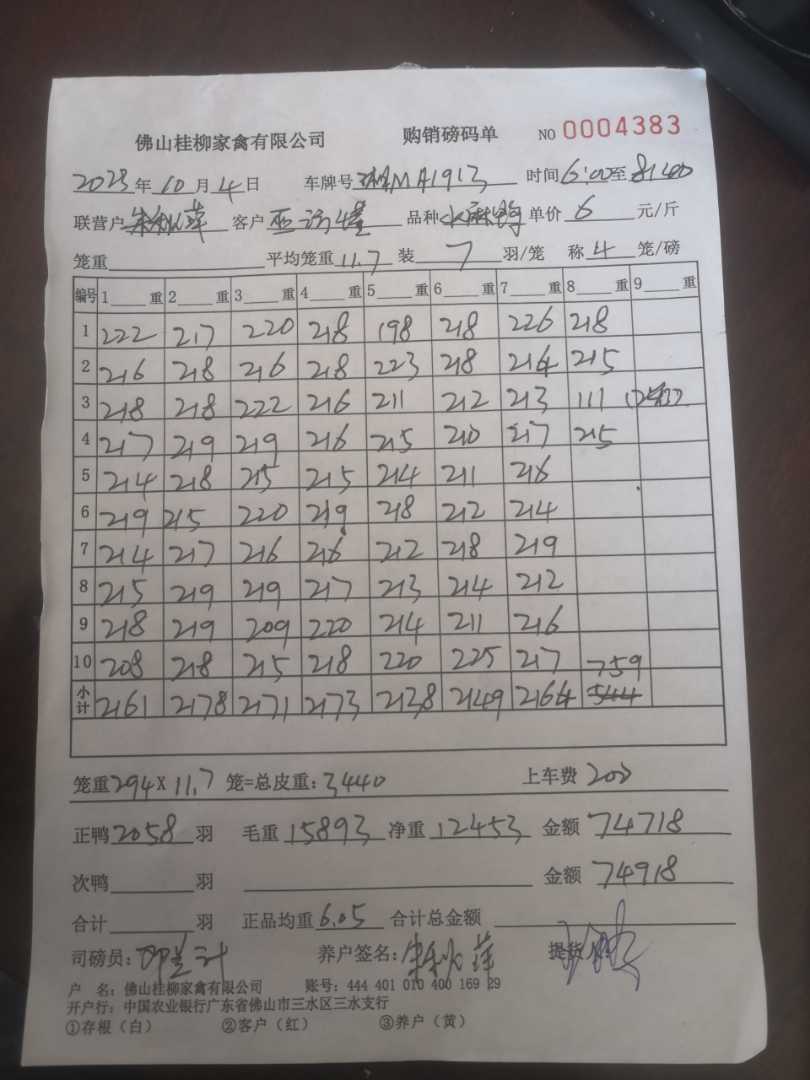 佛山桂柳家禽有限公司 购销磅码单 NO 0004383
2023年10月4日 车牌号 MA1913 时间6:00至
联营户 客户 品种 单价 6 元/斤
笼重 平均笼重 11.7 装 7 羽/笼 称 4 笼/磅
编号 1 重 2 重 3 重 4 重 5 重 6 重 7 重 8 重 9 重
1 222 217 220 218 198 218 226 218
2 216 218 216 218 223 218 214 215
3 218 218 222 216 211 212 213 111
4 217 219 219 216 215 210 217 215
5 214 218 215 215 214 211 216
6 219 215 220 219 218 212 214
7 214 217 216 216 212 218 219
8 215 219 219 217 213 214 212
9 218 219 209 220 214 211 216
10 208 218 215 218 220 225 217 759
小计 2161 2178 2171 2173 2138 2149 2164 544
笼重294X 11.7 笼=总皮重:3440 上车费 200
正鸭 2058 羽 毛重 15893 净重 12453 金额 74718
次鸭 羽 金额 74918
合计 羽 正品均重 6.05 合计总金额
司磅员: 养户签名: 提货
户 名:佛山桂柳家禽有限公司 账号:444 401 010 400 169 29
开户行:中国农业银行广东省佛山市三水区三水支行
①存根(白) ②客户(红) ③养户(黄)